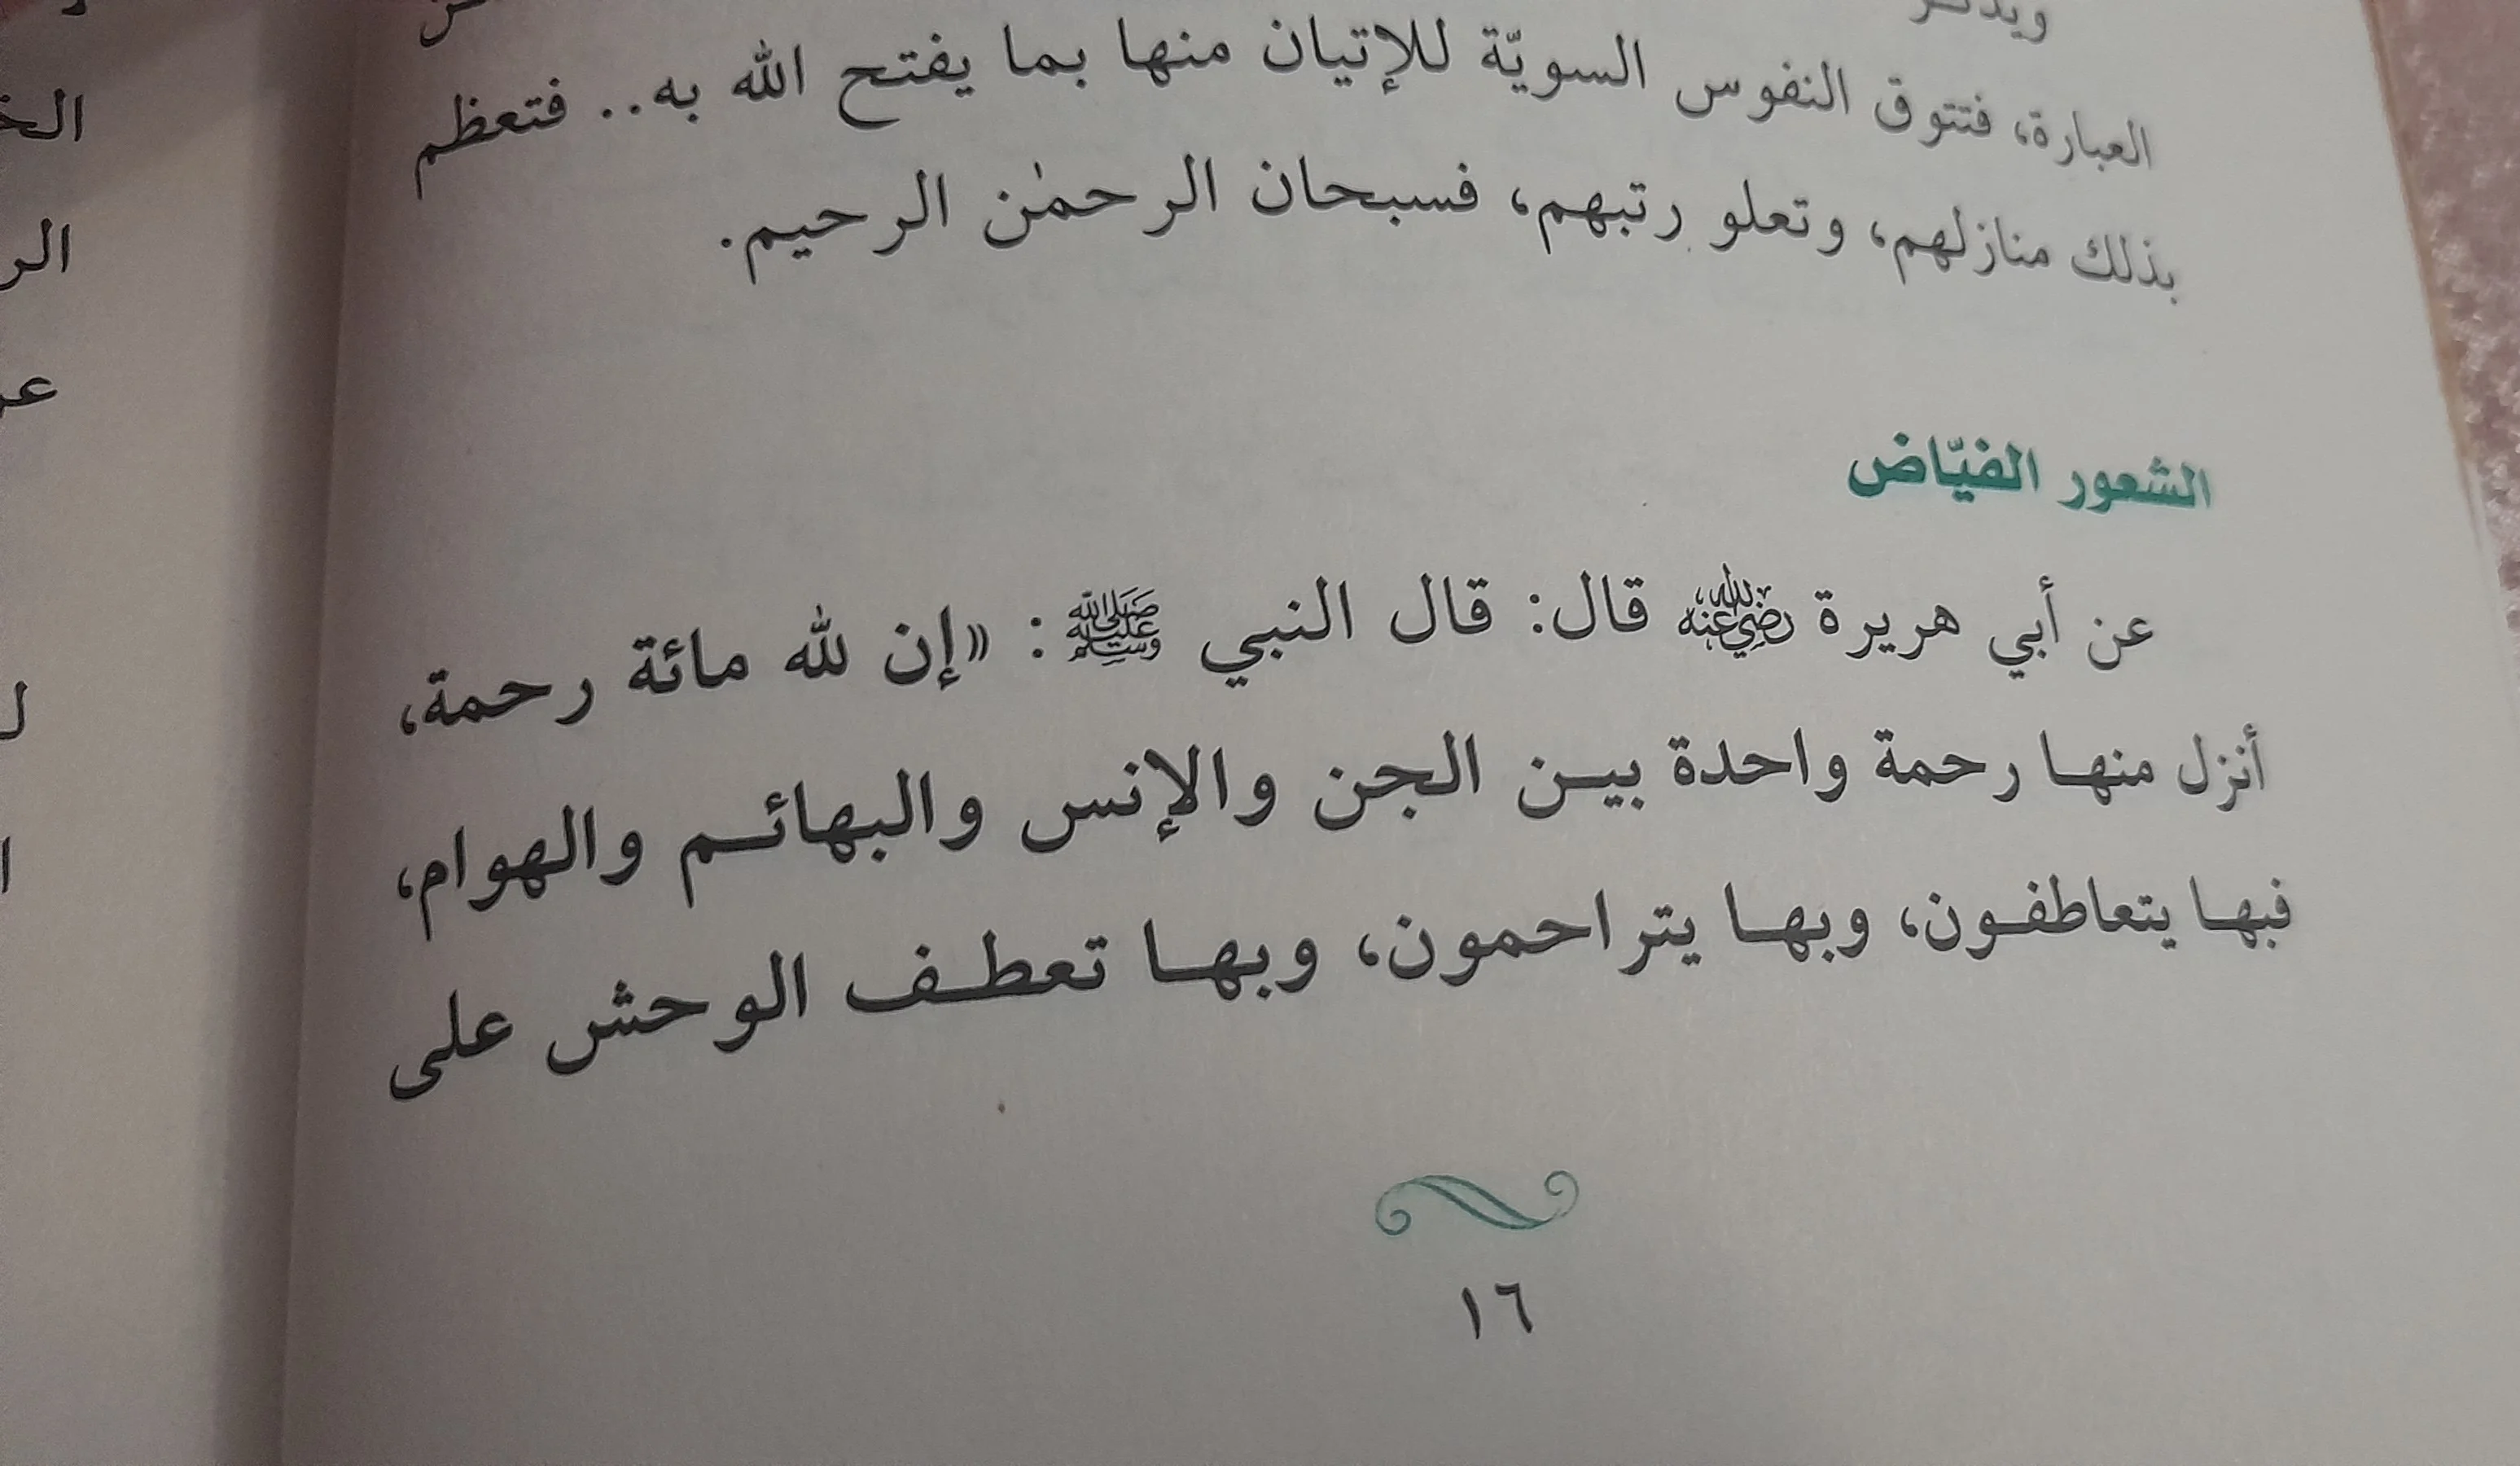 العبارة، فتتوق النفوس السويّة للإتيان منها بما يفتح الله به.. فتعظم
بذلك منازلهم، وتعلو رتبهم، فسبحان الرحمٰن الرحيم.
الشعور الفيّاض
عن أبي هريرة رضي الله عنه قال: قال النبي ﷺ: «إن لله مائة رحمة،
أنزل منها رحمة واحدة بين الجن والإنس والبهائم والهوام،
فبها يتعاطفون، وبها يتراحمون، وبها تعطف الوحش على
١٦